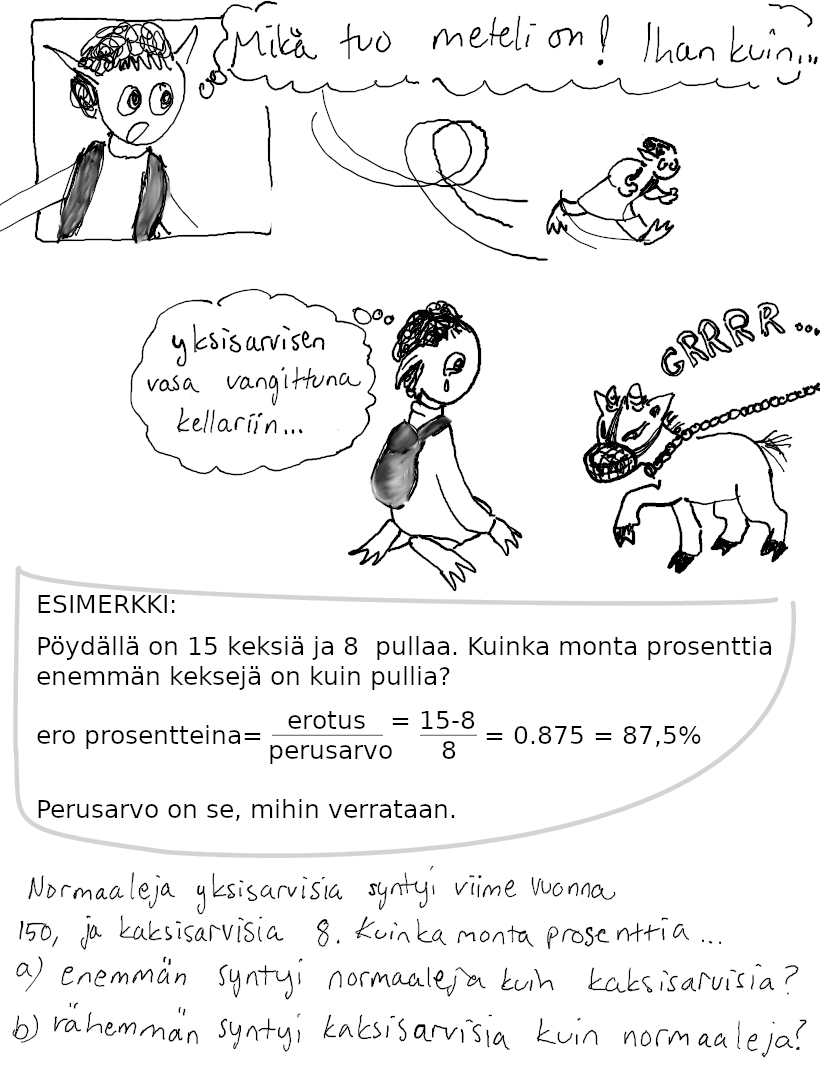 Mikä tuo meteli on! Ihan kuin...
yksisarvisen
vasa vangittuna
kellariin...
GRRRR...
ESIMERKKI:
Pöydällä on 15 keksiä ja 8 pullaa. Kuinka monta prosenttia
enemmän keksejä on kuin pullia?
ero prosentteina= erotus/perusarvo = 15-8/8 = 0.875 = 87,5%
Perusarvo on se, mihin verrataan.
Normaaleja yksisarvisia syntyi viime vuonna
150, ja kaksisarvisia 8. Kuinka monta prosenttia...
a) enemmän syntyi normaaleja kuin kaksisarvisia?
b) vähemmän syntyi kaksisarvisia kuin normaaleja?